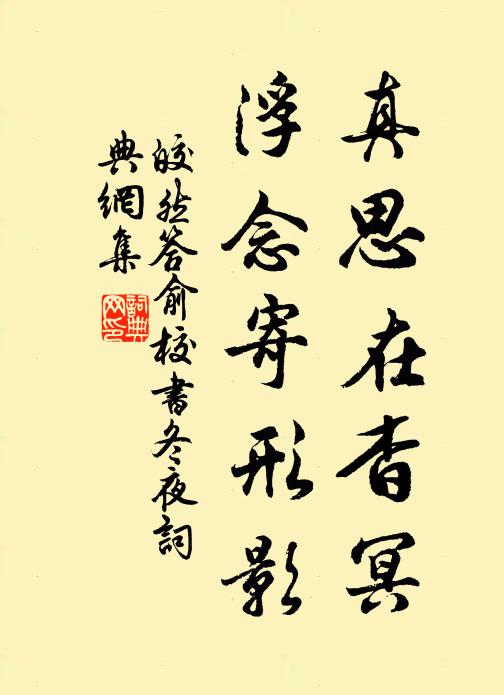 真思在杳冥
浮念寄形影
皎然答俞校書冬夜詞
典網集
詞典
网印